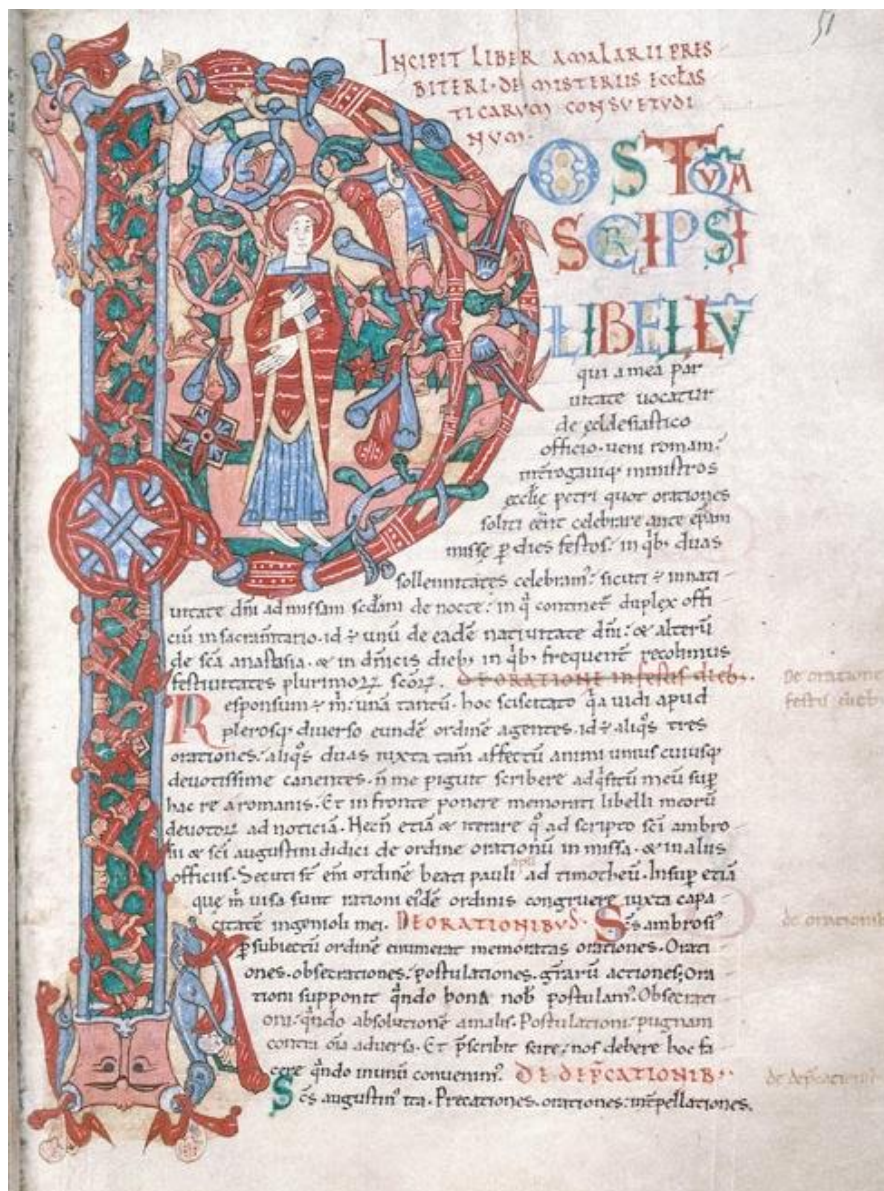 51
INCIPIT LIBER AMALARII PRES
BITERI· DE MISTERIIS ECCLAS
TICARUM CONSUETUDI
NUM·
POSTQUAM
SCRIPSI
LIBELLŪ
qui a mea par
uitate uocatur
de ecclesiastico
officio· ueni romam·
interrogauiq; ministros
ecclē petri quot orationes
soliti eēnt celebrare ante ep̄am
missę p dies festos· in qb; duas
sollennitates celebram᾽· sicuti ÷ in nati
uitate dn̄i ad missam scdam de nocte· in q̄ continet duplex offi
ciū in sacram̄tario· id ÷ unū de eadē natiuitate dn̄i· & alterū
de scā anastasia· & in dn̄icis dieb; in qb; frequent recolimus
festiuitates plurimoꝝ scōꝝ. DE ORATIONE in festis dieb;.
De oratione
festis dieb
Responsum ÷ m̄· unā tantū. hoc sciscitato qa uidi apud
plerosq; diuerso eundē ordinē agentes. id ÷ aliqs tres
orationes· aliqs duas iuxta tam̄ affectū animi unius cuiusq;
deuotissime canentes. n̄ me piguit scribere adqsitū meū sup
hac re a romanis. Et in fronte ponere memorati libelli meorū
deuotoꝝ ad noticiā. Necn̄ etiā & iterare q ad scripto scī ambro
sii & scī augustini didici de ordine orationū in missa. & in aliis
officiis. Secuti st̄ eni ordinē beati pauli apli ad timotheū. Insup etiā
que m̄ uisa sunt rationi eidē ordinis congruere iuxta capa
citatē ingenioli mei. DE ORATIONIBUS. Scs ambrosi᾽
de orationib
p subiectū ordinē enumerat memoratas orationes. Orati
ones. obsecrationes· postulationes. grarū actiones; Ora
tioni supponit qndo bona nob postulam᾽. Obsecrati
oni· qndo absolutionē a malis. Postulationi· pugnam
contra oīa aduersa. Et p̄scribit scire· nos debere hoc fa
cere qndo in unū conuenim᾽. DE DEP̄CATIONIB;·
de dep̄cationib
Scs augustin᾽ ita. Precationes. orationes· int̄pellationes.